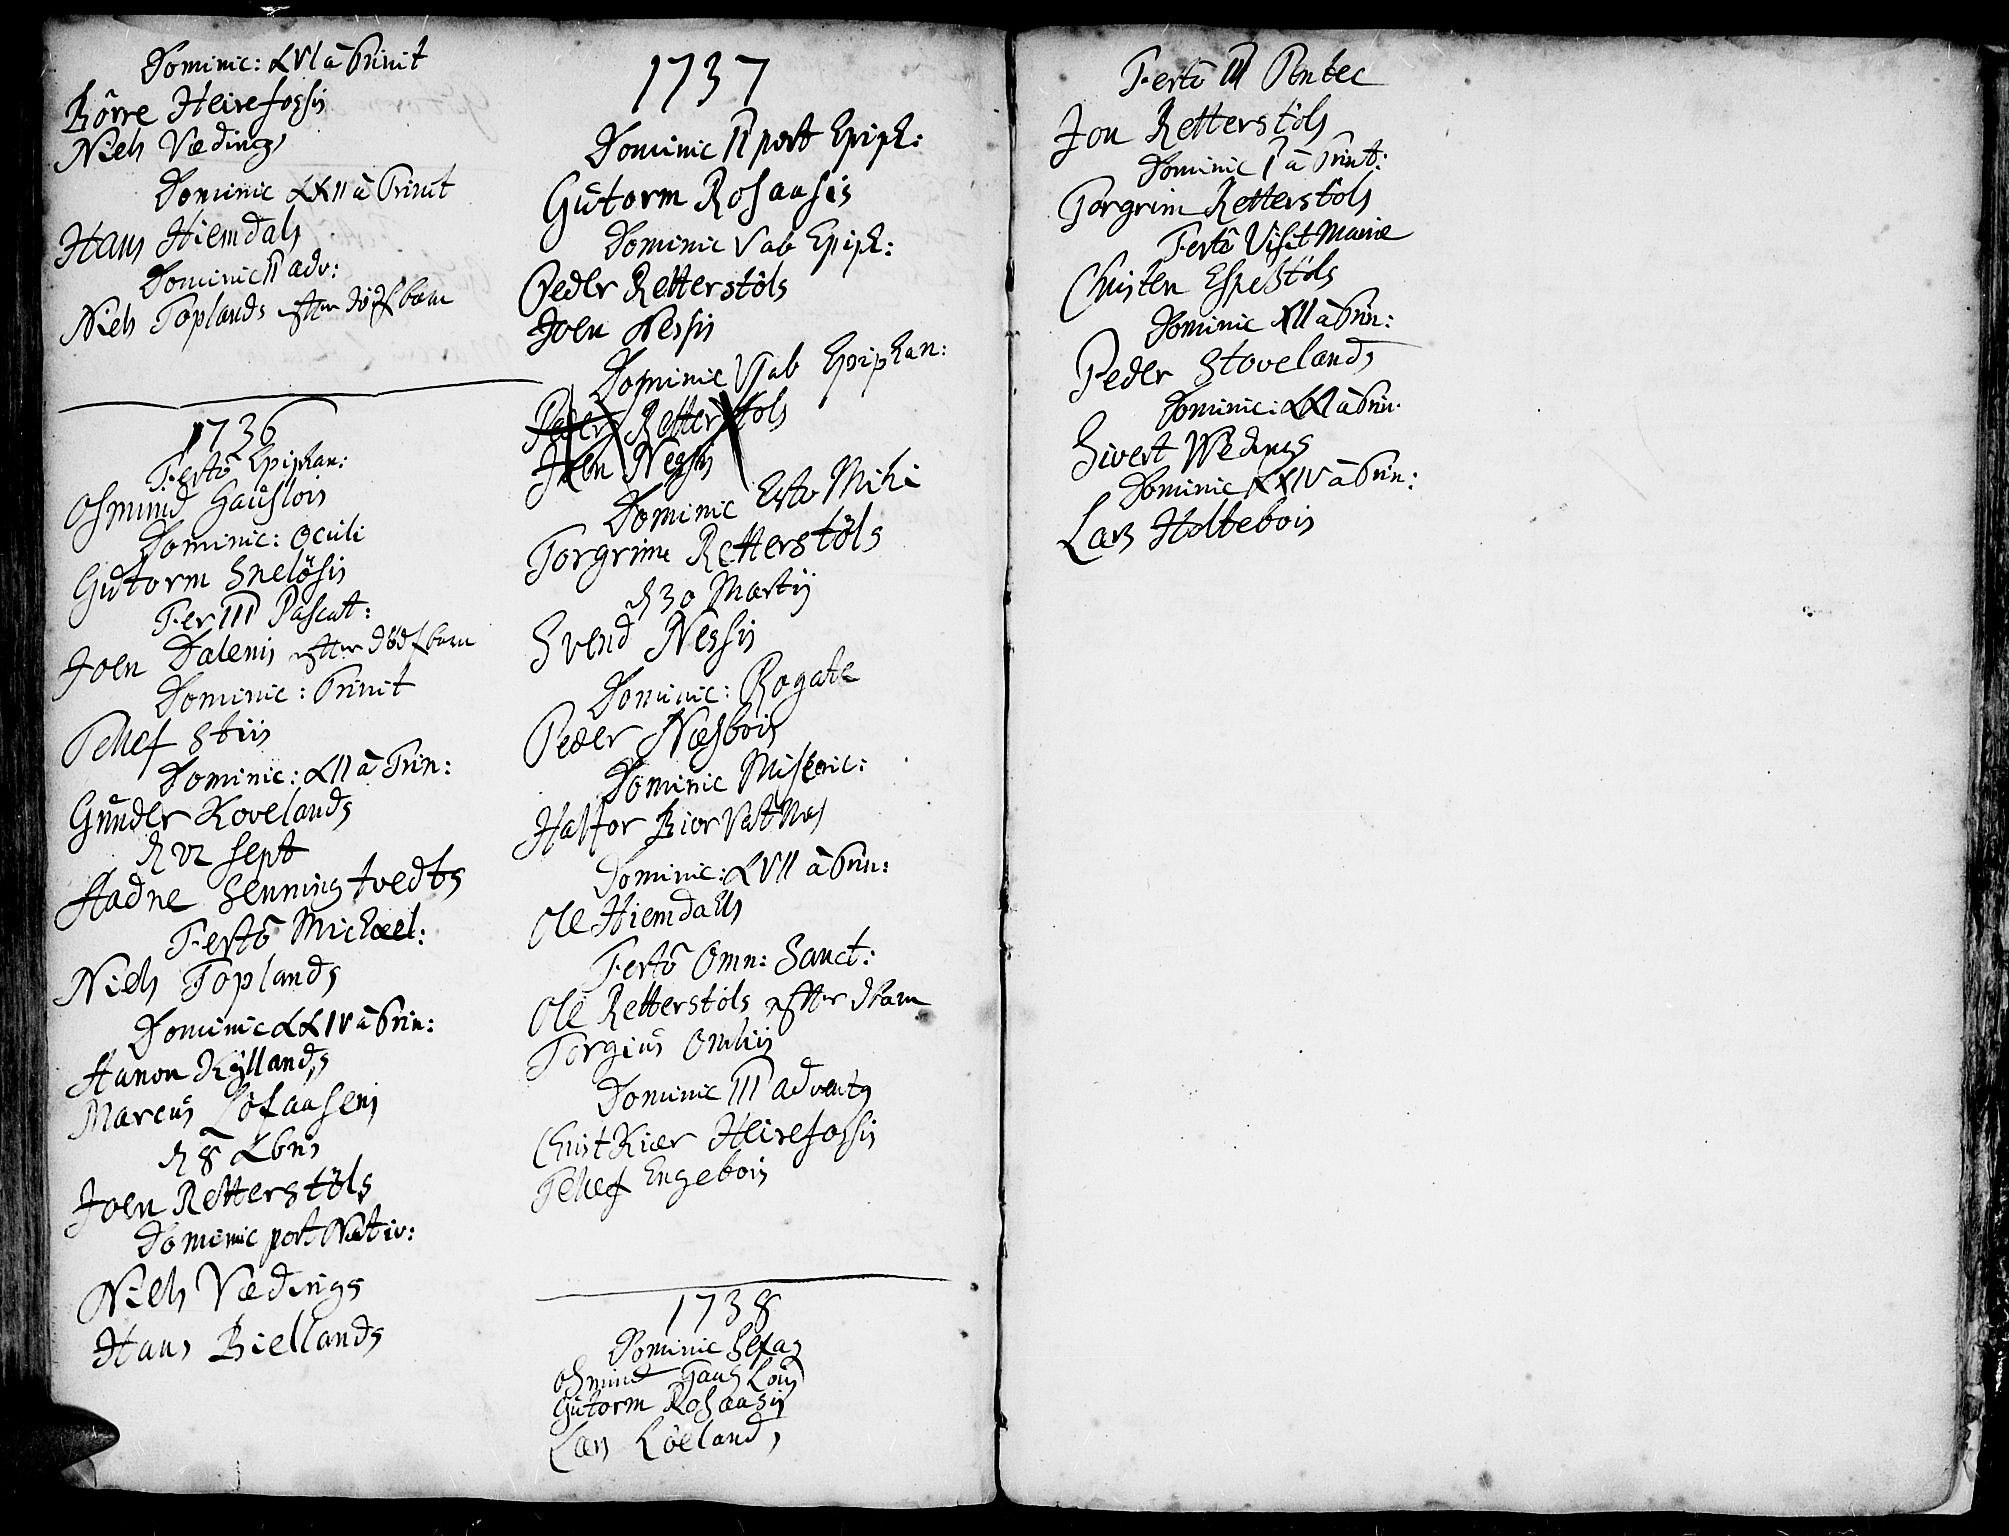 Dominic: XVI à Trinit
Börre Heirefossis
Niels Vædings
Dominic XXII à Trinit
Hans Hiemdals
Dominic II adv:
Niels Toplands efter dödf barn
1736
Festô Epiphan:
Osmund Gauslois
Dominic: Oculi
Gutorm Snelösis
Fer III Pascat:
Joen Dalenis efter dödf barn
Dominic: Trinit
Tellef Stiis
Dominic: XII à Trin:
Gunder Kovelands
d 12 Sept
Aadne Senningtvedts
Festô Michael:
Niels Toplands
Dominic XXIV à Trin:
Aanon Kyllands
Marcus Lofaasens
d 8 Xbris
Joen Retterstöls
Dominic post Nativ:
Niels Vædings
Hans Biellands
1737
Dominic II post Epiph:
Gutorm Rosaasis
Dominic V ab Epiph:
Peder Retterstöls
Joen Nessis
Dominic V ab Epiphan:
Peder Retterstöls
Joen Nessis
Dominic Esto Mihi
Torgrim Retterstöls
d 30 Martij
Svend Nessis
Dominic: Rogate
Peder Næsbois
Dominic Miseric:
Halfor Biorvatnas
Dominic: XVII à Trin:
Ole Hiemdalls
Festô Omn: Sanct:
Ole Retterstöls efter dbarn
Torgius Omlis
Dominic III advents
Christ Kiær Heirefossis
Tellef Engebois
1738
Dominic Sexag
Osmund Gauslois
Gutorm Rosaasis
Lars Löelands
Festô III Pentec
Jon Retterstöls
Dominic I à Trint:
Torgrim Retterstöls
Festô Visit Mariæ
Christen Espestöls
Dominic XII à Trin:
Peder Stovelands
Dominic: XXI à Trin:
Sivert Wedings
Dominic XXIV à Trin:
Lars Holtebois